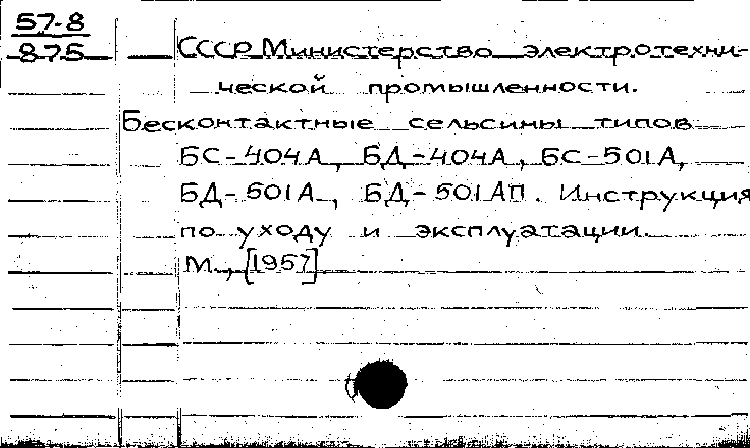 57-8
875
СССР Министерство электротехни-
ческой промышленности.
Бесконтактные сельсины типов
БС-404А, БД-404А, БС-501А,
БД-501А, БД-501АП. Инструкция
по уходу и эксплуатации.
М., [1957]